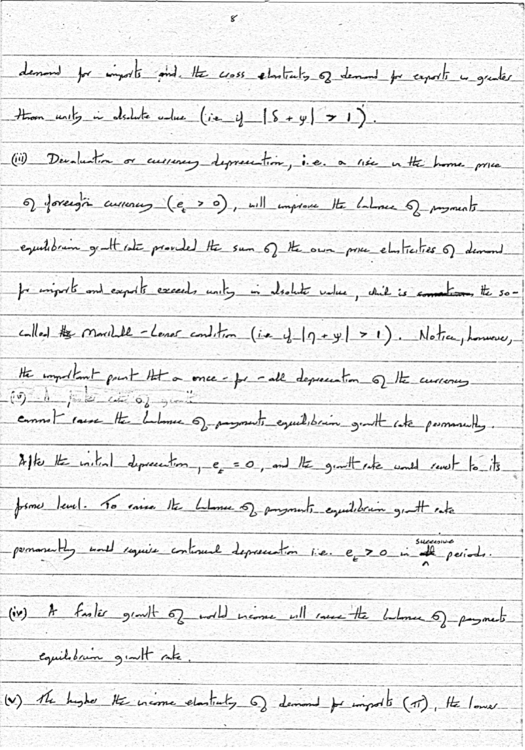 8
demand for imports and the cross elasticity of demand for exports is greater
than unity in absolute value (i.e. if |δ + ψ| > 1).
(iii) Devaluation or currency depreciation, i.e. a rise in the home price
of foreign currency (e_t > 0), will improve the balance of payments
equilibrium growth rate provided the sum of the own price elasticities of demand
for imports and exports exceeds unity in absolute value, which is the so-
called Marshall-Lerner condition (i.e. if |η + ψ| > 1). Notice, however,
the important point that a once-for-all depreciation of the currency
(iv) A faster rate of growth
cannot raise the balance of payments equilibrium growth rate permanently.
After the initial depreciation, e_t = 0, and the growth rate would revert to its
former level. To raise the balance of payments equilibrium growth rate
permanently would require continual depreciation i.e. e_t > 0 in successive periods.
(iv) A faster growth of world income will raise the balance of payments
equilibrium growth rate.
(v) The higher the income elasticity of demand for imports (π), the lower